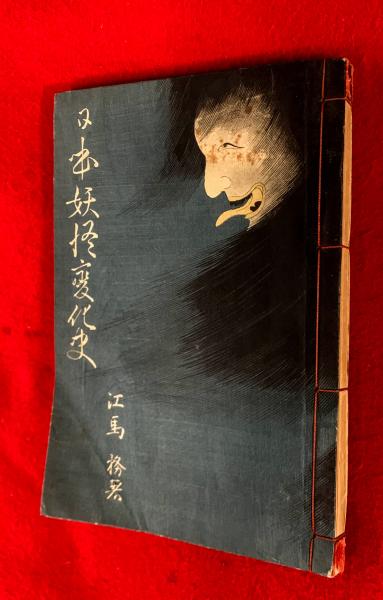 日本妖怪変化史
江馬務著